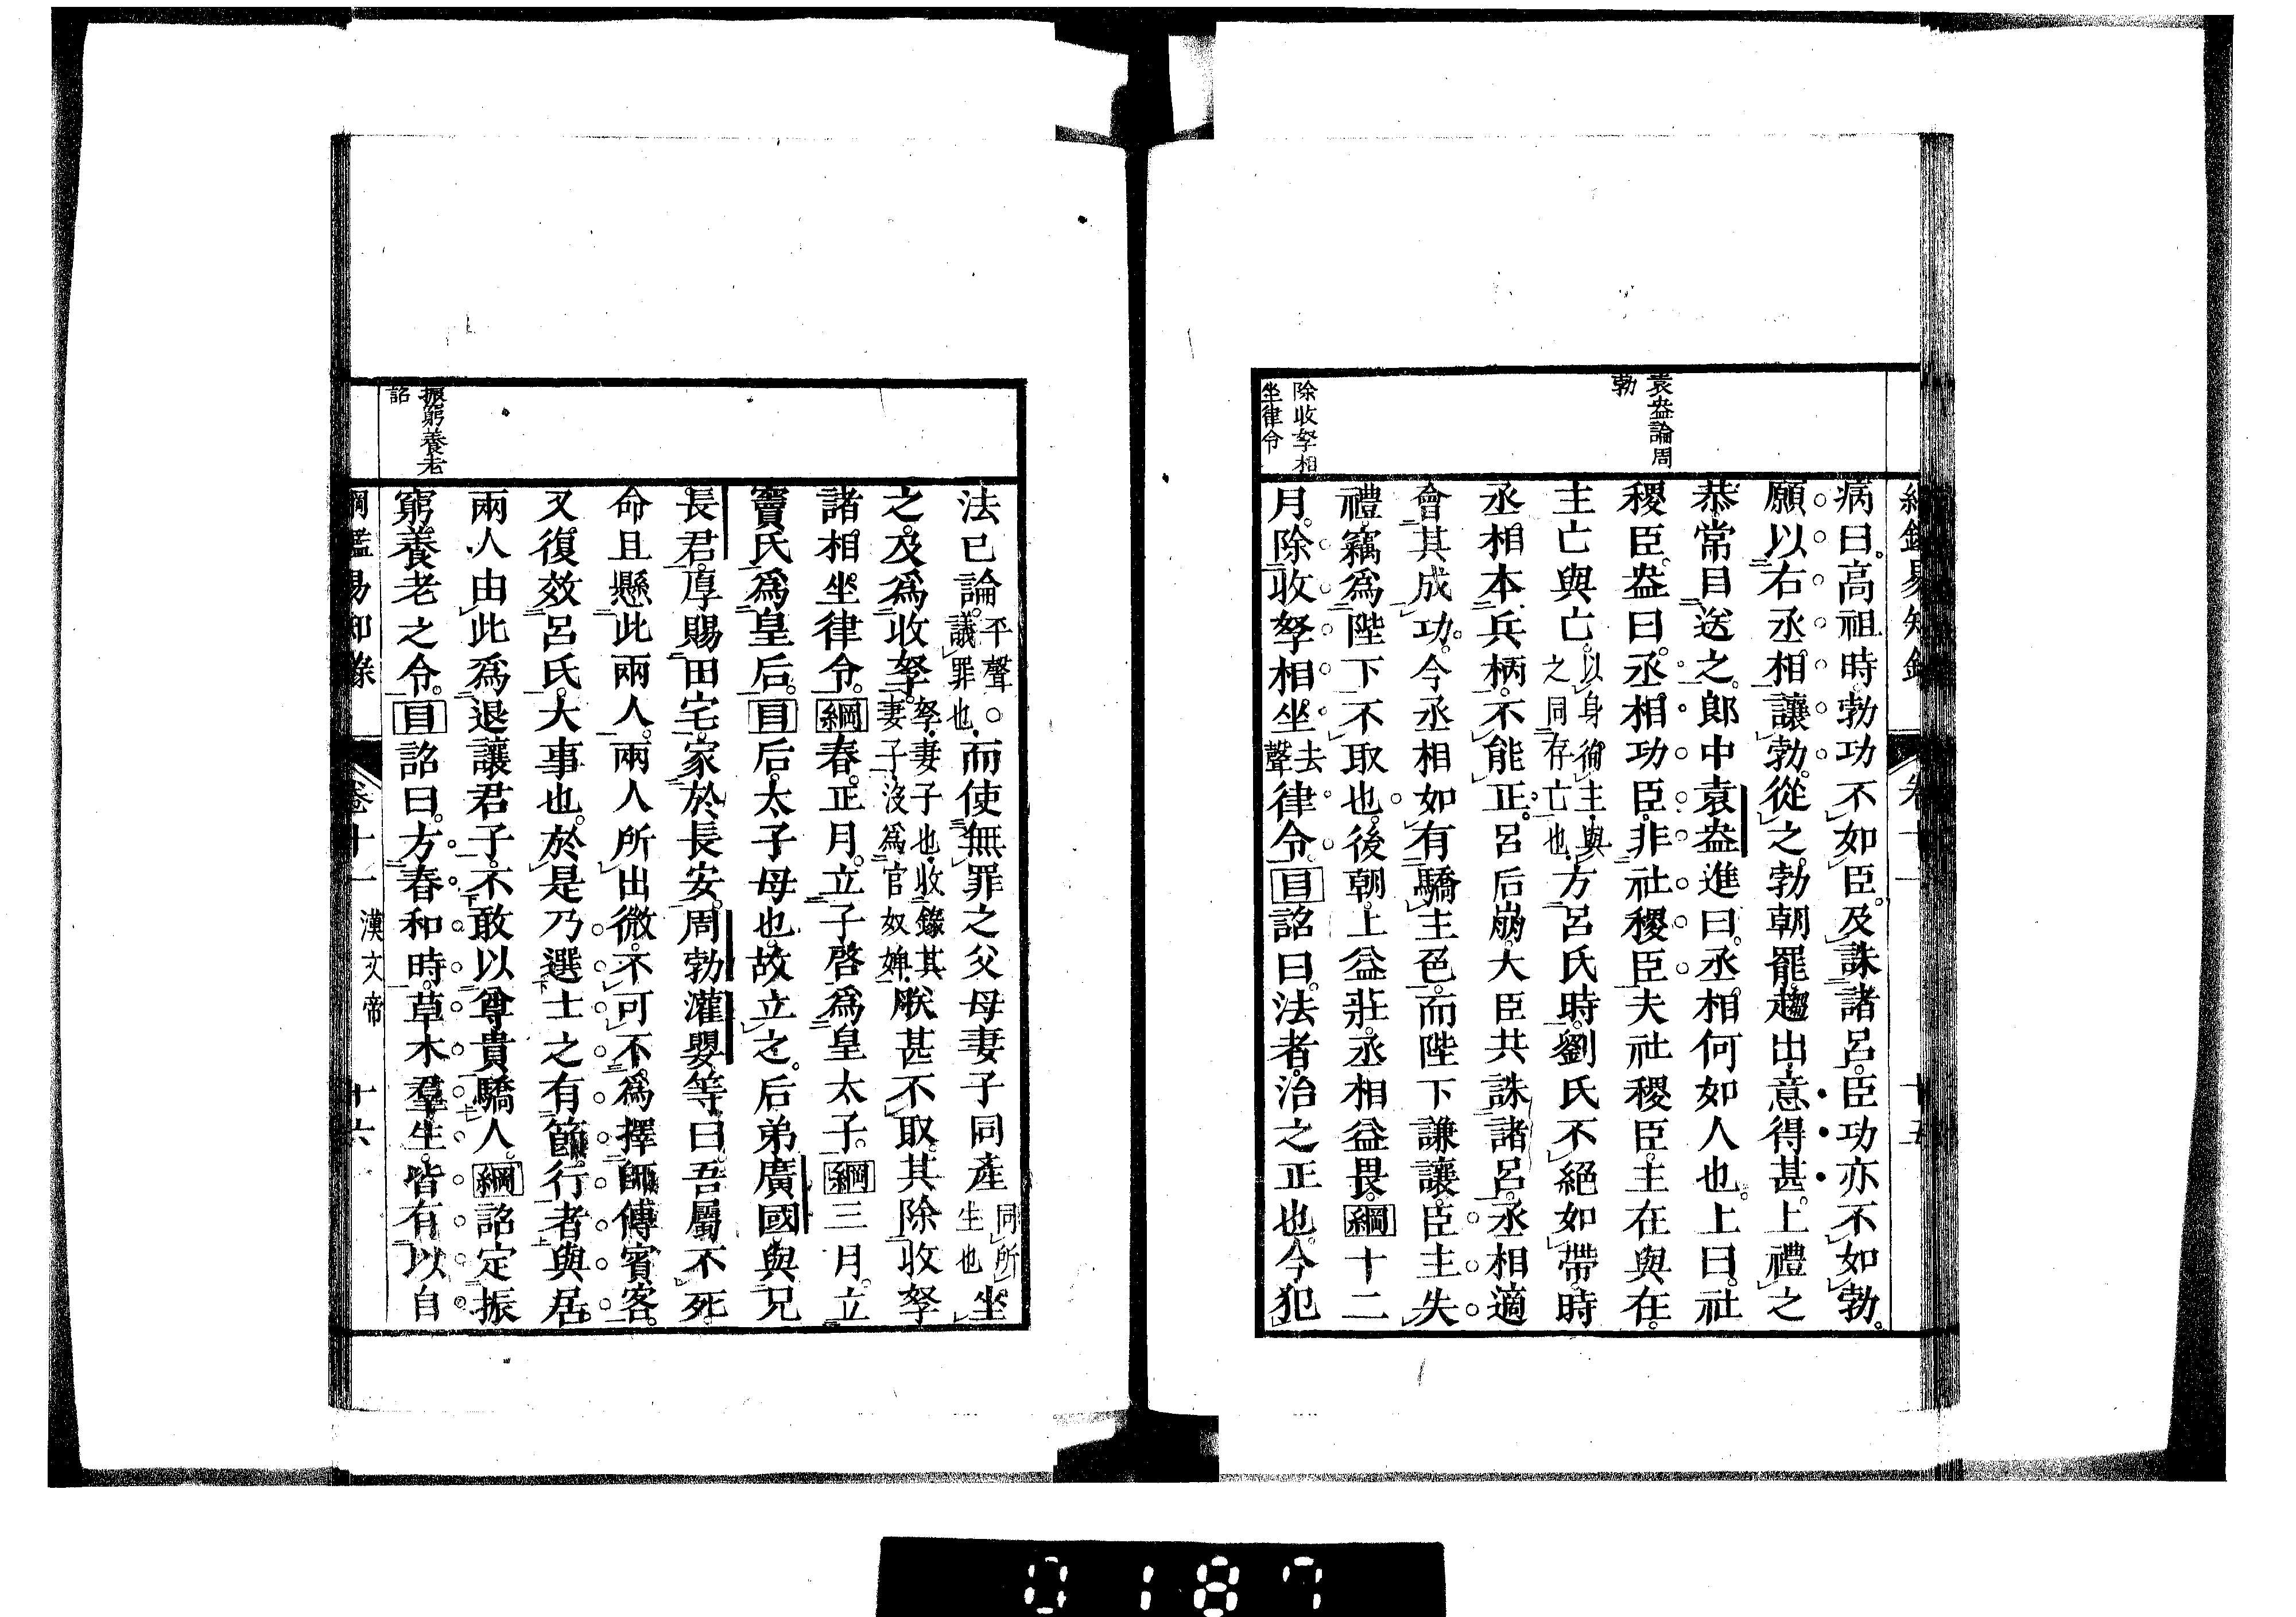 綱鑑易知錄 卷十一 十五
袁盎論周
勃
除收孥相
坐律令
病曰。高祖時勃功不如臣。及誅諸呂。臣功亦不如勃。
願以右丞相讓勃。從之。勃朝罷。趨出。意得甚。上禮之
恭。常目送之。郎中袁盎進曰。丞相何如人也。上曰。社
稷臣。盎曰。丞相功臣。非社稷臣。夫社稷臣。主在與在。
主亡與亡。以身徇主。與之同存亡也。方呂氏時。劉氏不絕如帶。時
丞相本兵柄。不能正。呂后崩。大臣共誅諸呂。丞相適
會其成功。今丞相如有驕主色。而陛下謙讓。臣主失
禮。竊爲陛下不取也。後朝。上益莊。丞相益畏。綱十二
月。除收孥相坐去聲律令。目詔曰。法者。治之正也。今犯
法已論。平聲。○議罪也。而使無罪之父母妻子同產同所生也坐
之。及爲收孥。孥。妻子也。收錄其妻子。沒爲官奴婢。朕甚不取。其除收孥
諸相坐律令。綱春。正月。立子啓爲皇太子。綱三月。立
竇氏爲皇后。目后。太子母也。故立之。后弟廣國與兄
長君。厚賜田宅。家於長安。周勃灌嬰等曰。吾屬不死。
命且懸此兩人。兩人所出微。不可不爲擇師傅賓客。
又復效呂氏。大事也。於是乃選士之有節行者與居。
兩人由此爲退讓君子。不敢以尊貴驕人。綱詔定振
窮。養老之令。目詔曰。方春和時。草木羣生。皆有以自
振窮養老
詔
綱鑑易知錄 卷十一 漢文帝 十六
0187